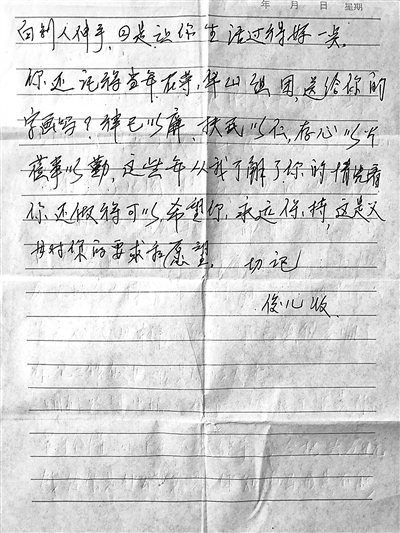 年 月 日 星期
向别人伸手,只是让你生活过得好一点。
你还记得当年在李 华山组团,送给你的
字画吗?律己以廉,抚民以仁,存心以公
莅事以勤,这些年从我了解了你的情况看
你还做得可以,希望你永远保持,这是父
母对你的要求和愿望。 切记!
俊儿收